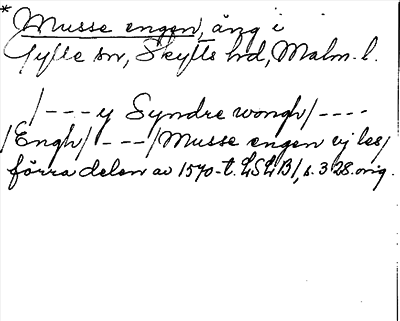 * Musse engen, äng i
Gylle sn, Skytts hd, Malm. l.
/---y Syndre wongh/----
/Engh/ ---/Musse engen vj les/
förra delen av 1570-t. LSLB1, s. 328. orig.